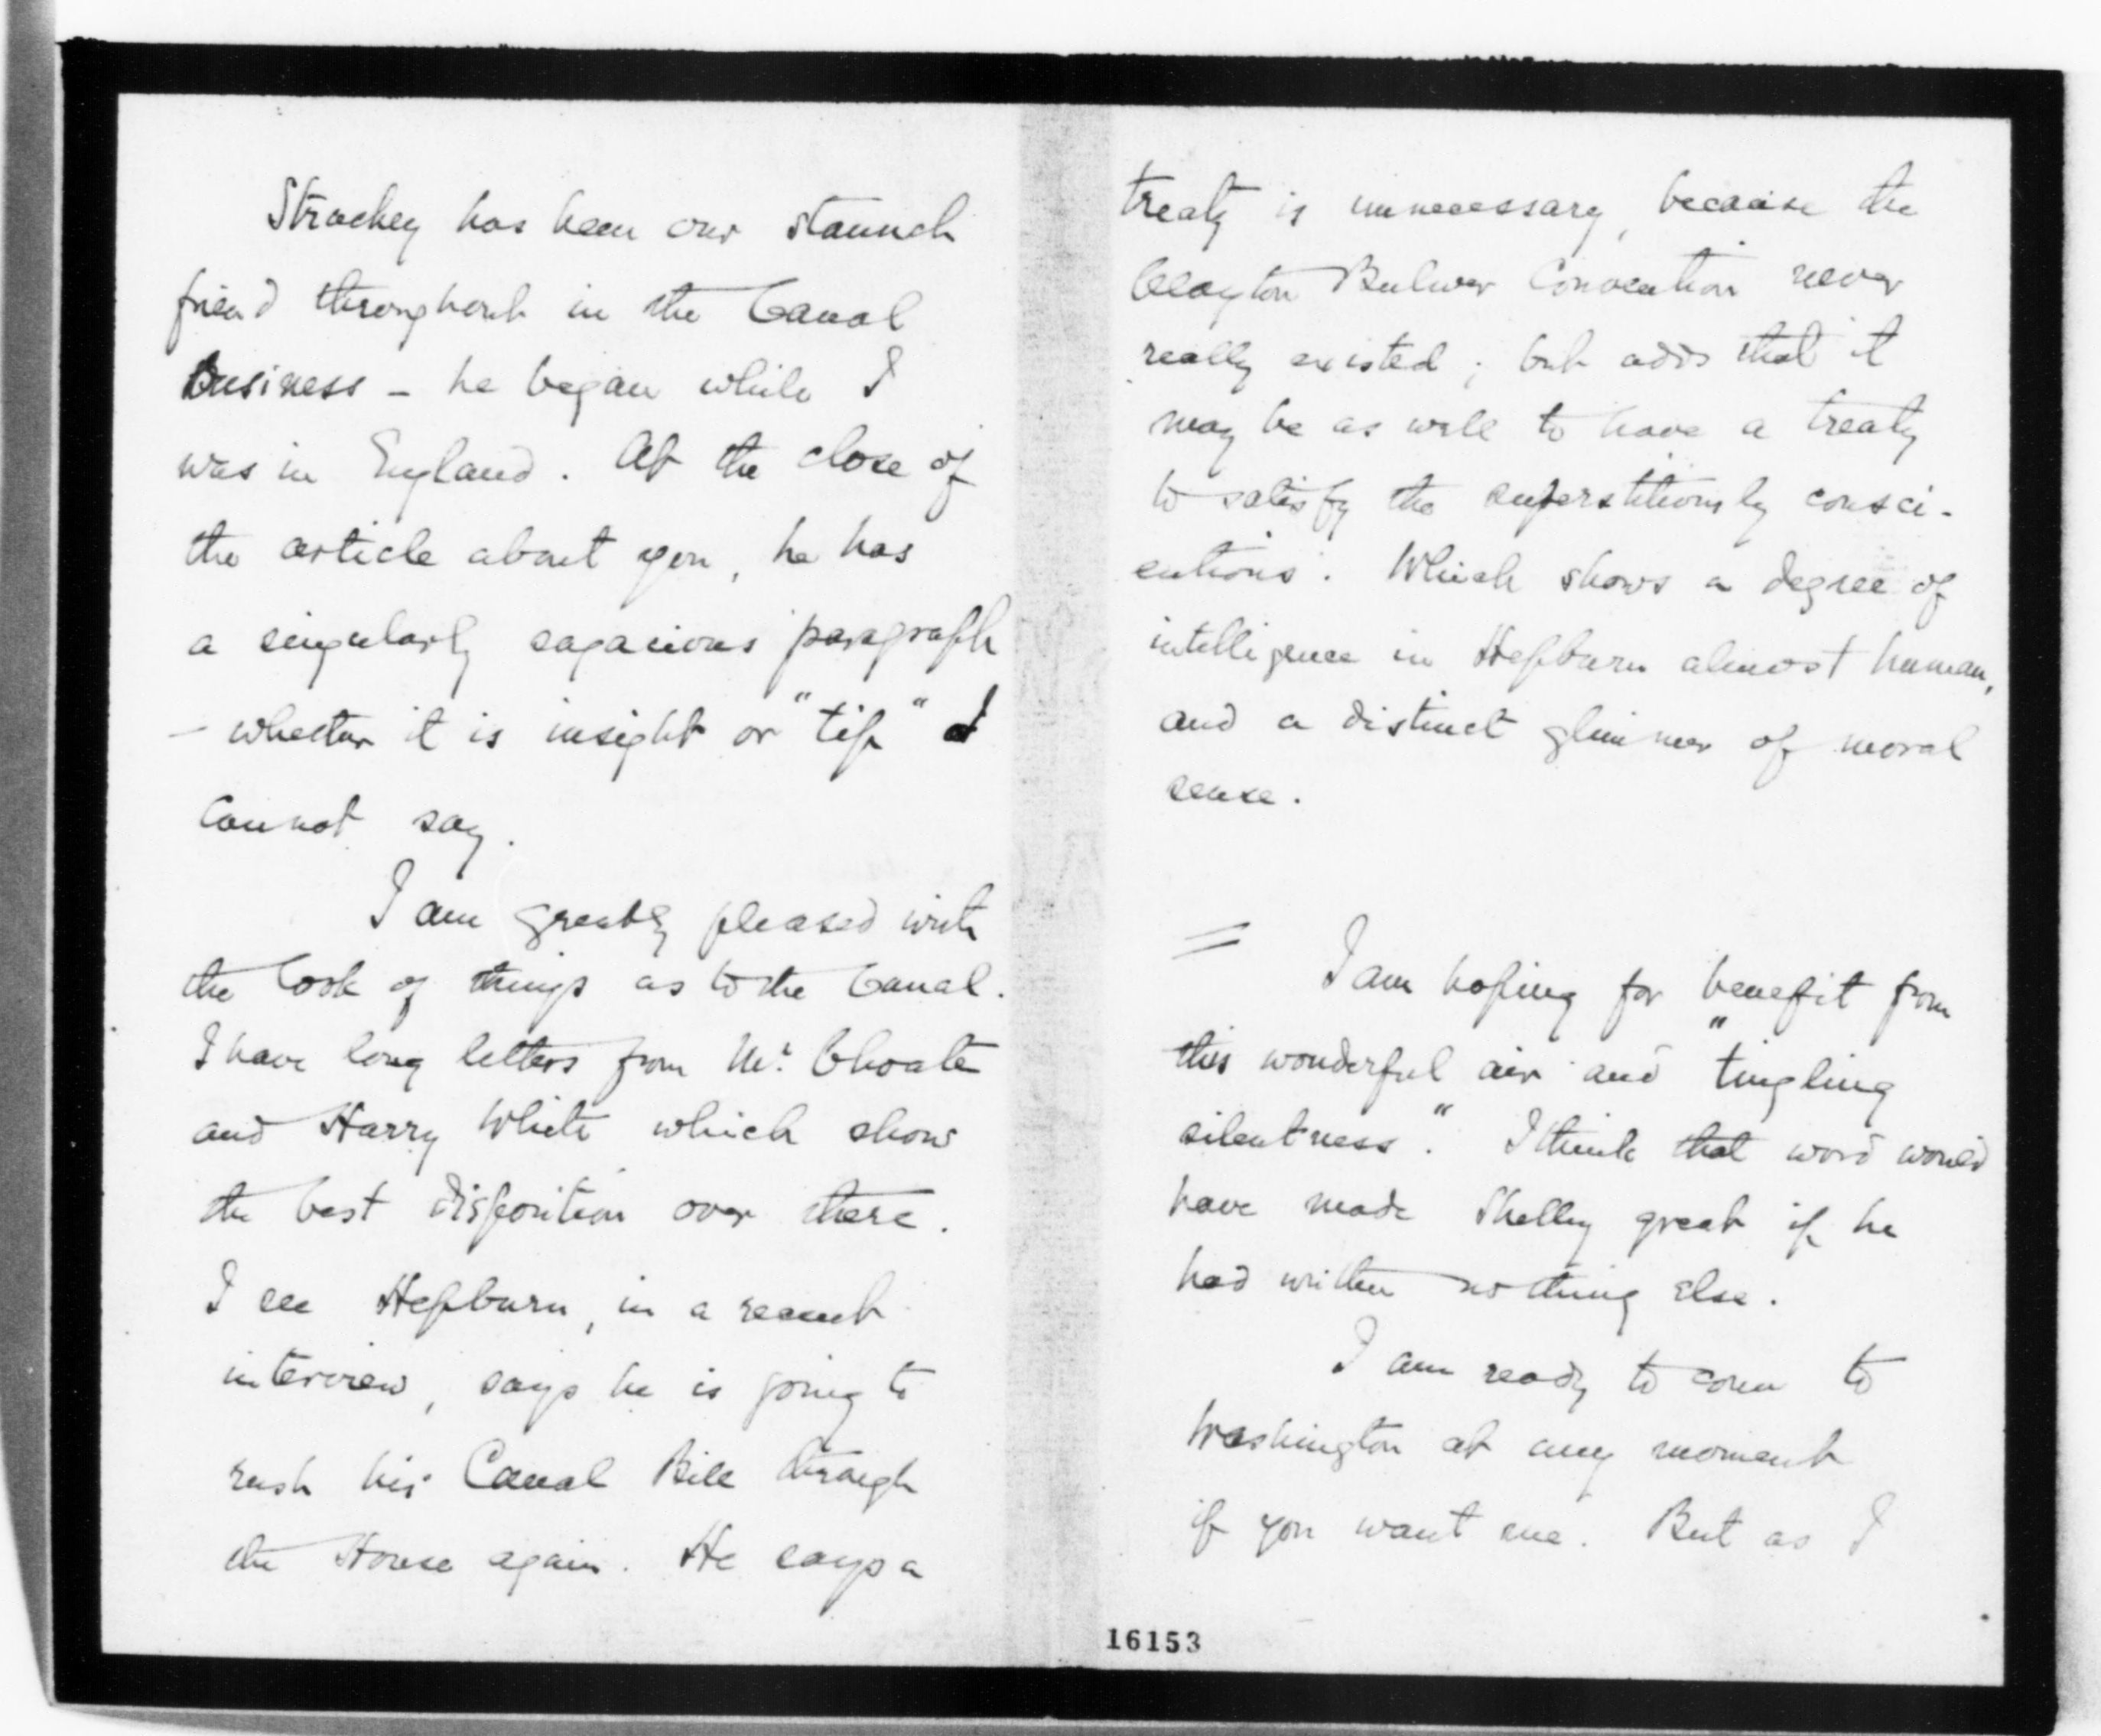 Strachey has been our staunch
friend throughout in the Canal
Business – he began while I
was in England. At the close of
the article about you, he has
a singularly sagacious paragraph
– whether it is insight or "tip" I
cannot say.
I am greatly pleased with
the look of things as to the Canal.
I have long letters from Mr. Choate
and Harry White which show
the best disposition over there.
I see Hepburn, in a recent
interview, says he is going to
rush his Canal Bill through
the House again. He says a
treaty is unnecessary, because the
Clayton Bulwer Convention never
really existed; but adds that it
may be as well to have a treaty
to satisfy the superstitiously consci-
entious. Which shows a degree of
intelligence in Hepburn almost human,
and a distinct glimmer of moral
sense.
= I am hoping for benefit from
this wonderful air and "tingling
silentness". I think that word would
have made Shelley great if he
had written nothing else.
I am ready to come to
Washington at any moment
if you want me. But as I
16153